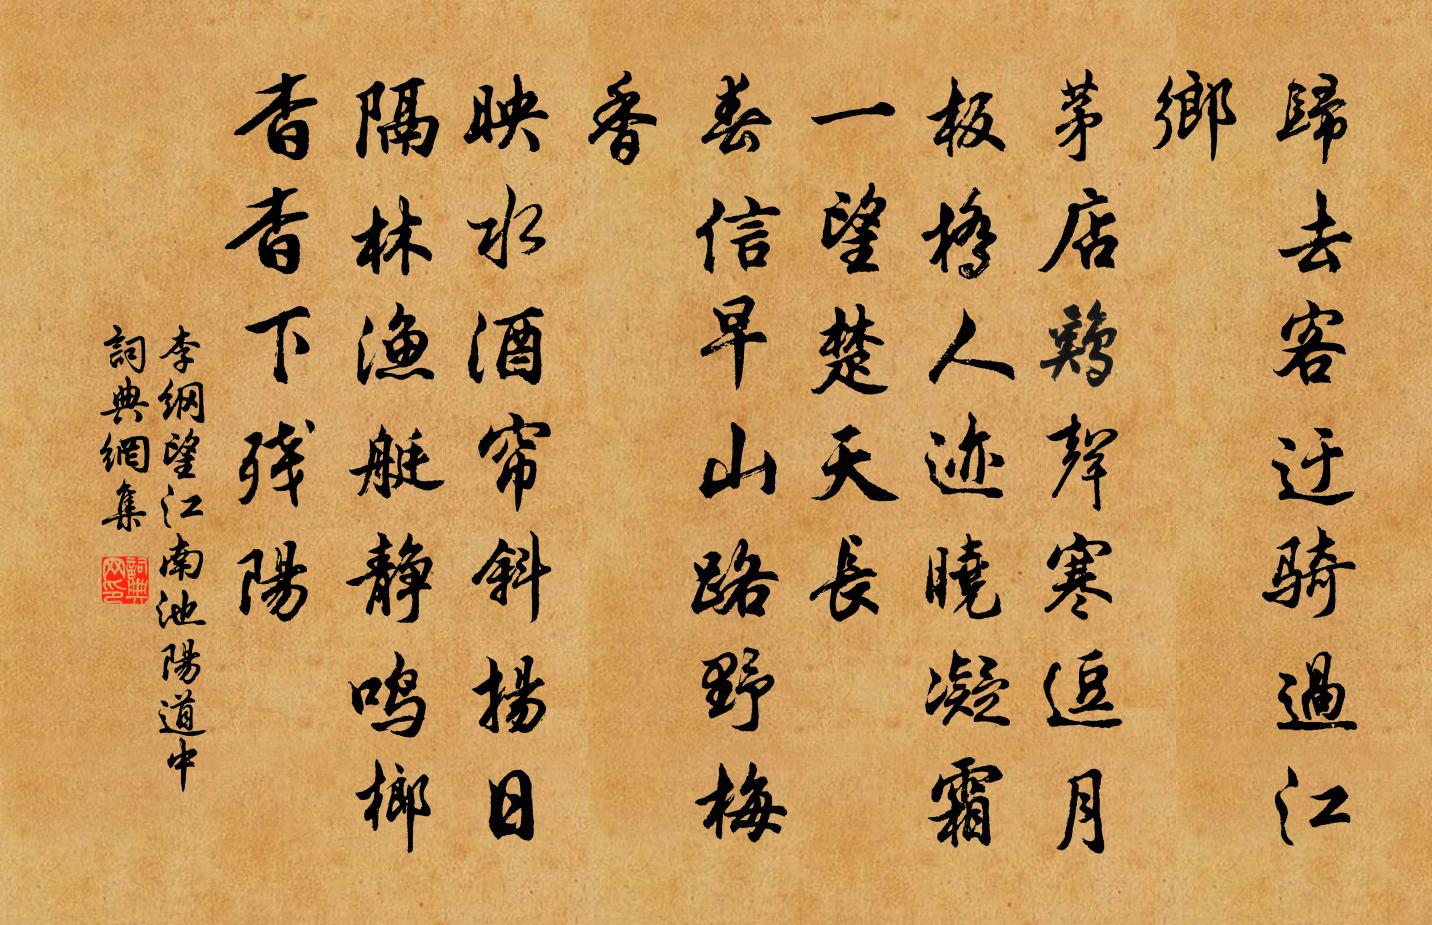 歸去客迂骑過江
鄉
茅店鷄聲寒逗月
板橋人迹曉凝霜
一望楚天長
春信早山路野梅
香
映水酒帘斜揚日
隔林漁艇静鸣榔
杳杳下残陽
李綱望江南池陽道中
詞典網集
詞典网印